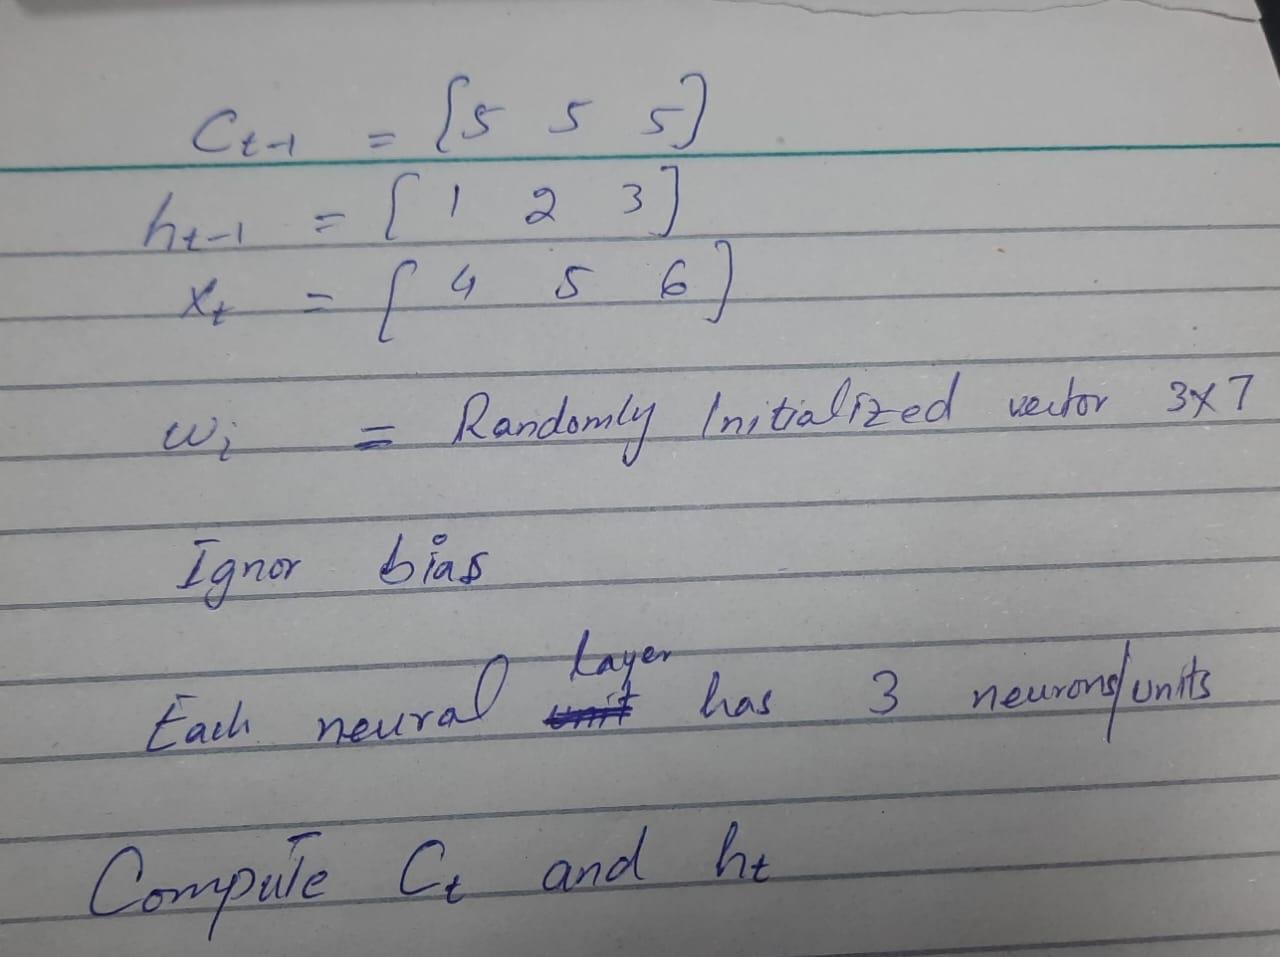 Ct-1 = [5 5 5]
ht-1 = [1 2 3]
xt = [4 5 6]
wi = Randomly Initialized vector 3x7
Ignor bias
Each neural Layer has 3 neurons/units
Compute Ct and ht